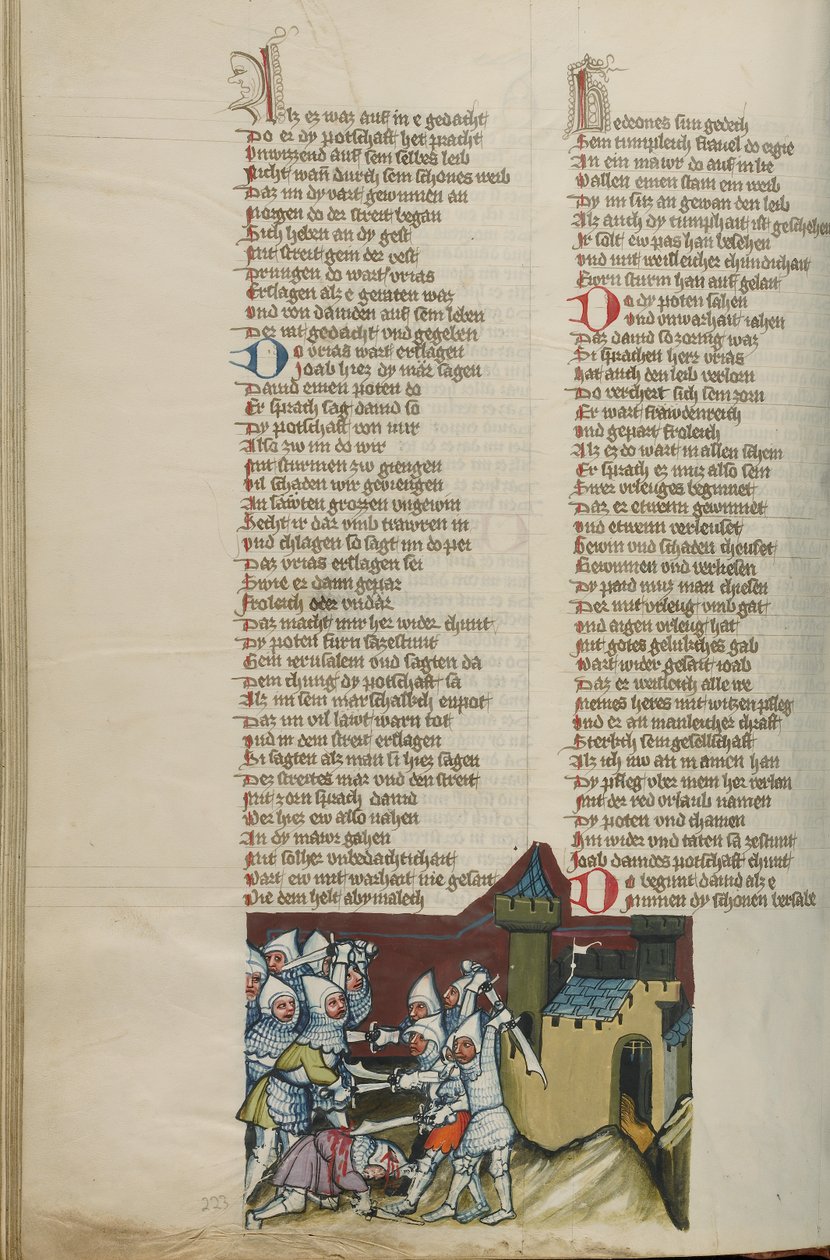 Alz ez waz auf in e gedacht
Do er dy potschaft het pracht
Vnwizzend auf sein selbes leib
Nicht wan durch sein schones weib
Daz im dy vart gewunnen an
Morgen do der streit began
Sich heben an dy gest
Mit streit gein der vest
Drungen do wart vrias
Erslagen alz e geraten waz
Vnd von dauiden auf sein leben
Der mit gedacht vnd gegeben
Do vrias wart erslagen
Joab hiez dy mar sagen
Dauid einen poten do
Er sprach sag dauid so
Dy potschaft von mir
Also zw im do wir
Mit sturmen zw giengen
Vil schaden wir geviengen
An lawten grozzen vngewin
Secht ir dar vmb trawren in
Vnd chlagen so sagt im do pei
Daz vrias erslagen sei
Swie er dann gepar
Froleich oder vndar
Daz macht mir her wider chunt
Dy poten furn sazestunt
Gein ierusalem vnd sagten da
Dem chung dy potschaft sa
Alz im sein marschalch enpot
Daz im vil lawt warn tot
Vnd in dem streit erslagen
Si sagten alz man si hiez sagen
Dez streites mar vnd den streit
Mit zorn sprach dauid
Wer hiez ew also nahen
An dy mawr gahen
Mit solher vnbedachtichait
Wart ew mit warhait nie gesait
Wie dem helt abymalech
Gedeones sun gedech
Sein tumpleich frauel do ergie
An ein mawr do auf in lie
Vallen einen stain ein weib
Dy im sus an gewan den leib
Alz auch dy tumphait ist geschehen
Ir solt ew pas han besehen
Vnd mit weisleicher chundichait
Ewrn sturm han auf gelait
Do dy poten sahen
Vnd vnwarhait iahen
Daz dauid so zornig waz
Si sprachen herr vrias
Hat auch den leib verlorn
Do verchert sich sein zorn
Er wart frawdenreich
Vnd gepart froleich
Alz ez do wart in allen schein
Er sprach ez muz also sein
Swer vrleuges beginnet
Daz er etwenn gewinnet
Vnd etwenn verleuset
Gewin vnd schaden cheuset
Gewinnen vnd verliesen
Dy paid muz man chiesen
Der mit vrleug vmb gat
Vnd aigen vrleug hat
Mit gotes gelukches gab
Wart wider gesait ioab
Daz er weisleich alle we
Meines heres mit witzen pfleg
Vnd er an manleicher chraft
Sterkch sein gesellschaft
Alz ich iw an in ainen han
Dy pfleg vber mein her verlan
Mit der red vrlaub namen
Dy poten vnd chamen
Hin wider vnd taten sa zestunt
Joab dauides potschaft chunt
Do begunt dauid alz e
Minnen dy schonen bersabe
223